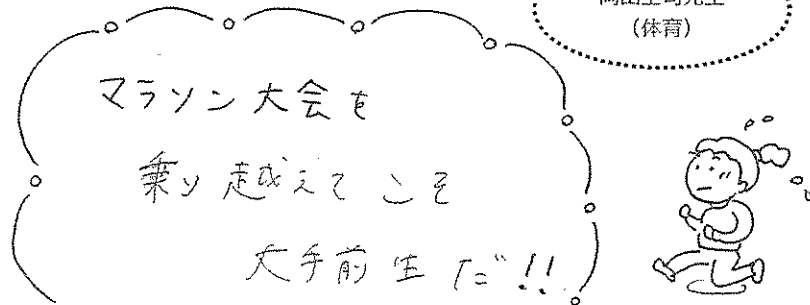 (体育)
マラソン大会を
乗り越えてこそ
大手前生だ!!